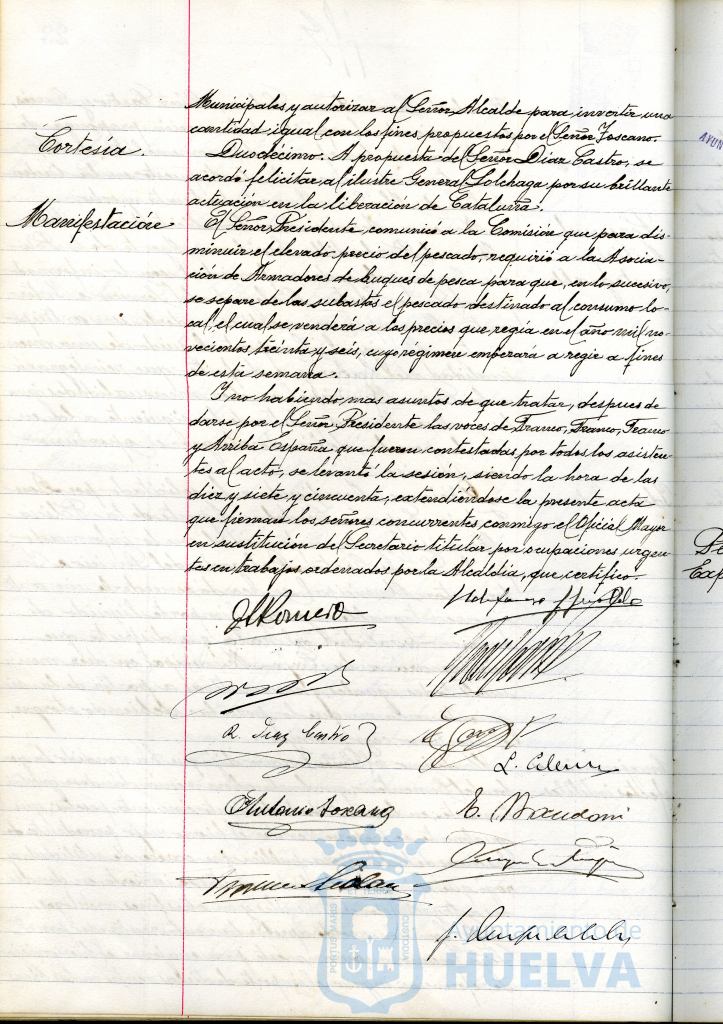 Municipales, y autorizar al Señor Alcalde para invertir una
cantidad igual con los fines propuestos por el Señor Toscano.
Cortesía.
Duodécimo. A propuesta del Señor Díaz Castro, se
acordó felicitar, al ilustre General Solchaga por su brillante
actuación en la liberación de Cataluña.
Manifestación
El Señor Presidente, comunicó a la Comisión que para dis-
minuir el elevado precio del pescado, requirió a la Asocia-
ción de Armadores de buques de pesca para que, en lo sucesivo,
se separe de las subastas el pescado destinado al consumo lo-
cal, el cual se venderá a los precios que regía en el año mil no-
vecientos treinta y seis, cuyo régimen empezará a regir a fines
de esta semana.
Y no habiendo mas asuntos de que tratar, despues de
darse por el Señor Presidente las voces de Franco, Franco, Franco
y Arriba España que fueron contestadas por todos los asisten-
tes al acto, se levantó la sesión, siendo la hora de las
diez y siete y cincuenta, extendiéndose la presente acta
que firman los señores concurrentes conmigo el Oficial Mayor
en sustitución del Secretario titular por ocupaciones urgen-
tes en trabajos ordenados por la Alcaldía, que certifico.
Romero
R. Diaz Castro
Antonio Toscano
Ayuntamiento de
HUELVA